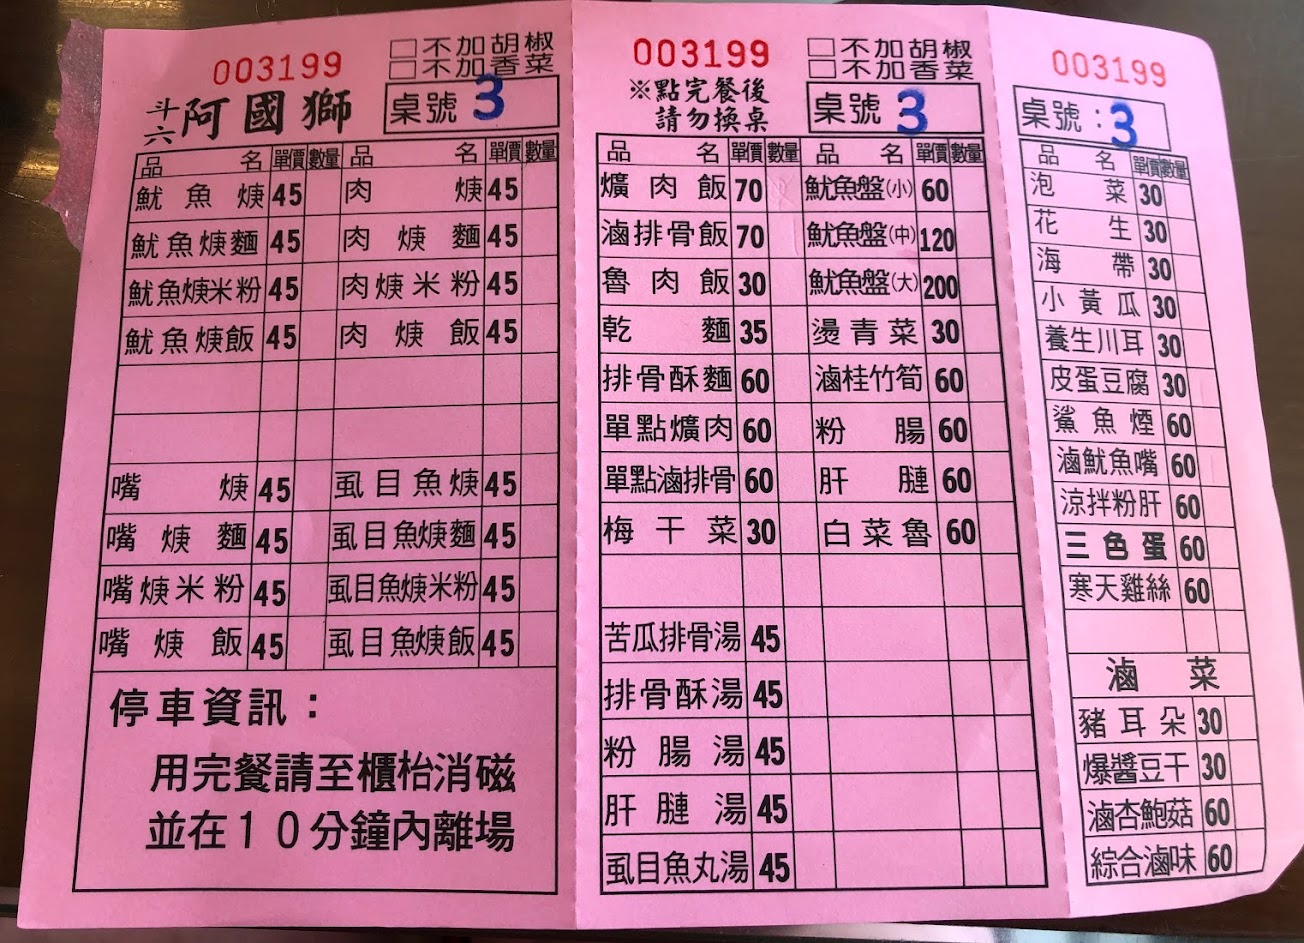 003199
□不加胡椒
□不加香菜
斗六 阿國獅
桌號 3
品名 單價 數量 品名 單價 數量
魷魚焿 45 肉焿 45
魷魚焿麵 45 肉焿麵 45
魷魚焿米粉 45 肉焿米粉 45
魷魚焿飯 45 肉焿飯 45
嘴焿 45 虱目魚焿 45
嘴焿麵 45 虱目魚焿麵 45
嘴焿米粉 45 虱目魚焿米粉 45
嘴焿飯 45 虱目魚焿飯 45
停車資訊：
用完餐請至櫃枱消磁
並在１０分鐘內離場
003199
□不加胡椒
□不加香菜
※點完餐後
請勿換桌
桌號 3
品名 單價 數量 品名 單價 數量
爌肉飯 70 魷魚盤(小) 60
滷排骨飯 70 魷魚盤(中) 120
魯肉飯 30 魷魚盤(大) 200
乾麵 35 燙青菜 30
排骨酥麵 60 滷桂竹筍 60
單點爌肉 60 粉腸 60
單點滷排骨 60 肝膥 60
梅干菜 30 白菜魯 60
苦瓜排骨湯 45
排骨酥湯 45
粉腸湯 45
肝膥湯 45
虱目魚丸湯 45
003199
桌號：3
品名 單價 數量
泡菜 30
花生 30
海帶 30
小黃瓜 30
養生川耳 30
皮蛋豆腐 30
鯊魚煙 60
滷魷魚嘴 60
涼拌粉肝 60
三色蛋 60
寒天雞絲 60
滷菜
豬耳朵 30
爆醬豆干 30
滷杏鮑菇 60
綜合滷味 60